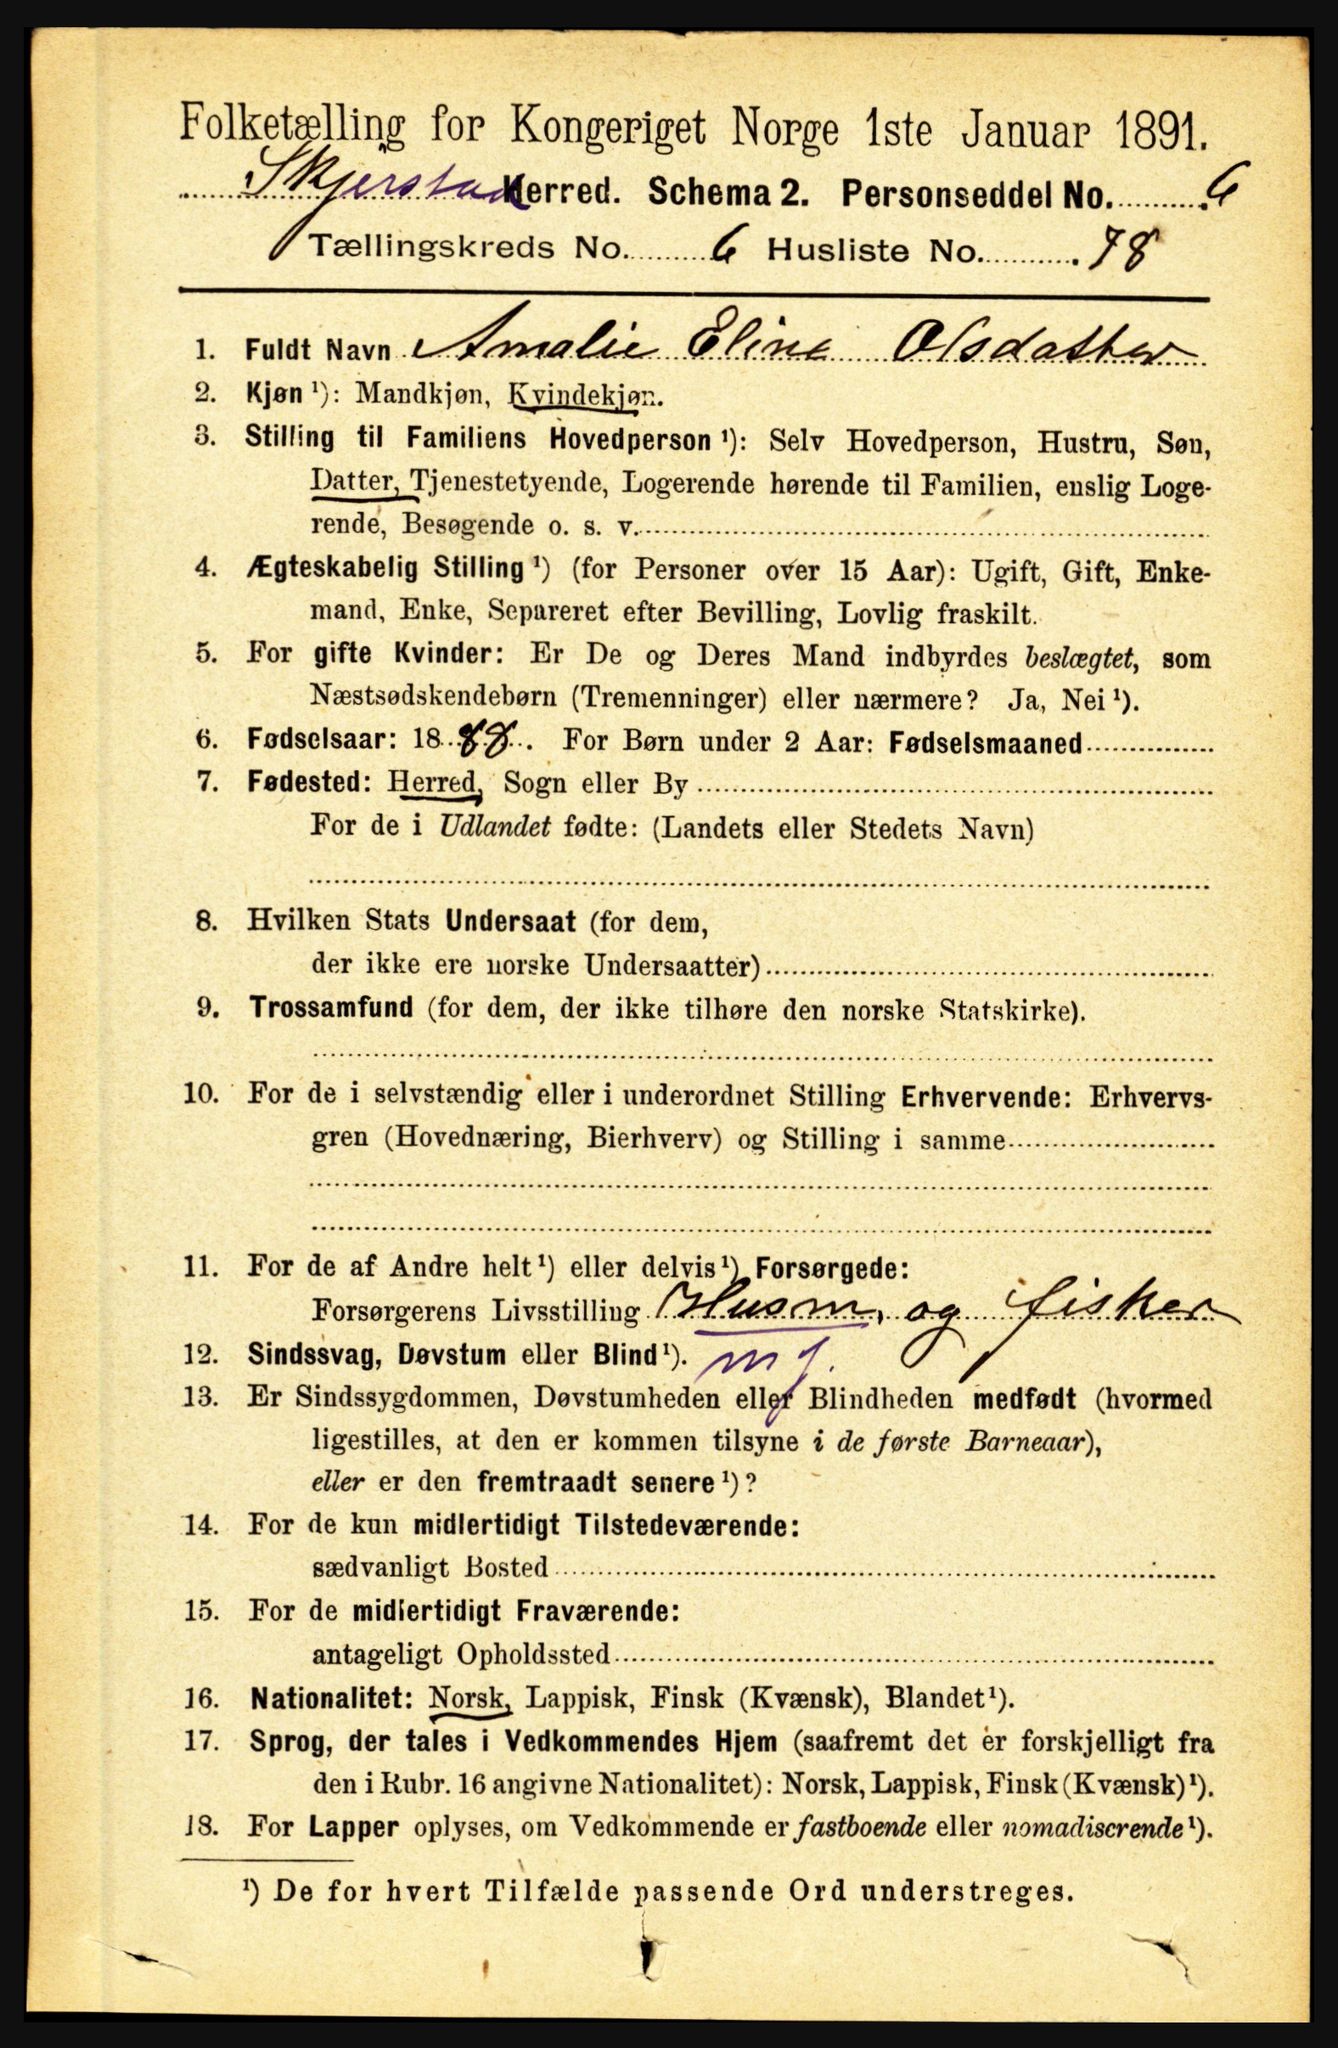 Folketælling for Kongeriget Norge 1ste Januar 1891.
Skjerstad Herred. Schema 2. Personseddel No. 6
Tællingskreds No. 6 Husliste No. 78
1. Fuldt Navn Amalie Eline Olsdatter
2. Kjøn ¹): Mandkjøn, Kvindekjøn.
3. Stilling til Familiens Hovedperson ¹): Selv Hovedperson, Hustru, Søn,
Datter, Tjenestetyende, Logerende hørende til Familien, enslig Loge-
rende, Besøgende o. s. v.
4. Ægteskabelig Stilling ¹) (for Personer over 15 Aar): Ugift, Gift, Enke-
mand, Enke, Separeret efter Bevilling, Lovlig fraskilt.
5. For gifte Kvinder: Er De og Deres Mand indbyrdes beslægtet, som
Næstsødskendebørn (Tremenninger) eller nærmere? Ja, Nei ¹).
6. Fødselsaar: 1888. For Børn under 2 Aar: Fødselsmaaned
7. Fødested: Herred, Sogn eller By
For de i Udlandet fødte: (Landets eller Stedets Navn)
8. Hvilken Stats Undersaat (for dem,
der ikke ere norske Undersaatter)
9. Trossamfund (for dem, der ikke tilhøre den norske Statskirke).
10. For de i selvstændig eller i underordnet Stilling Erhvervende: Erhvervs-
gren (Hovednæring, Bierhverv) og Stilling i samme
11. For de af Andre helt ¹) eller delvis ¹) Forsørgede:
Forsørgerens Livsstilling Husm. og fisker
12. Sindssvag, Døvstum eller Blind ¹). mj.
13. Er Sindssygdommen, Døvstumheden eller Blindheden medfødt (hvormed
ligestilles, at den er kommen tilsyne i de første Barneaar),
eller er den fremtraadt senere ¹)?
14. For de kun midlertidigt Tilstedeværende:
sædvanligt Bosted
15. For de midlertidigt Fraværende:
antageligt Opholdssted
16. Nationalitet: Norsk, Lappisk, Finsk (Kvænsk), Blandet ¹).
17. Sprog, der tales i Vedkommendes Hjem (saafremt det er forskjelligt fra
den i Rubr. 16 angivne Nationalitet): Norsk, Lappisk, Finsk (Kvænsk) ¹).
18. For Lapper oplyses, om Vedkommende er fastboende eller nomadiserende ¹).
¹) De for hvert Tilfælde passende Ord understreges.